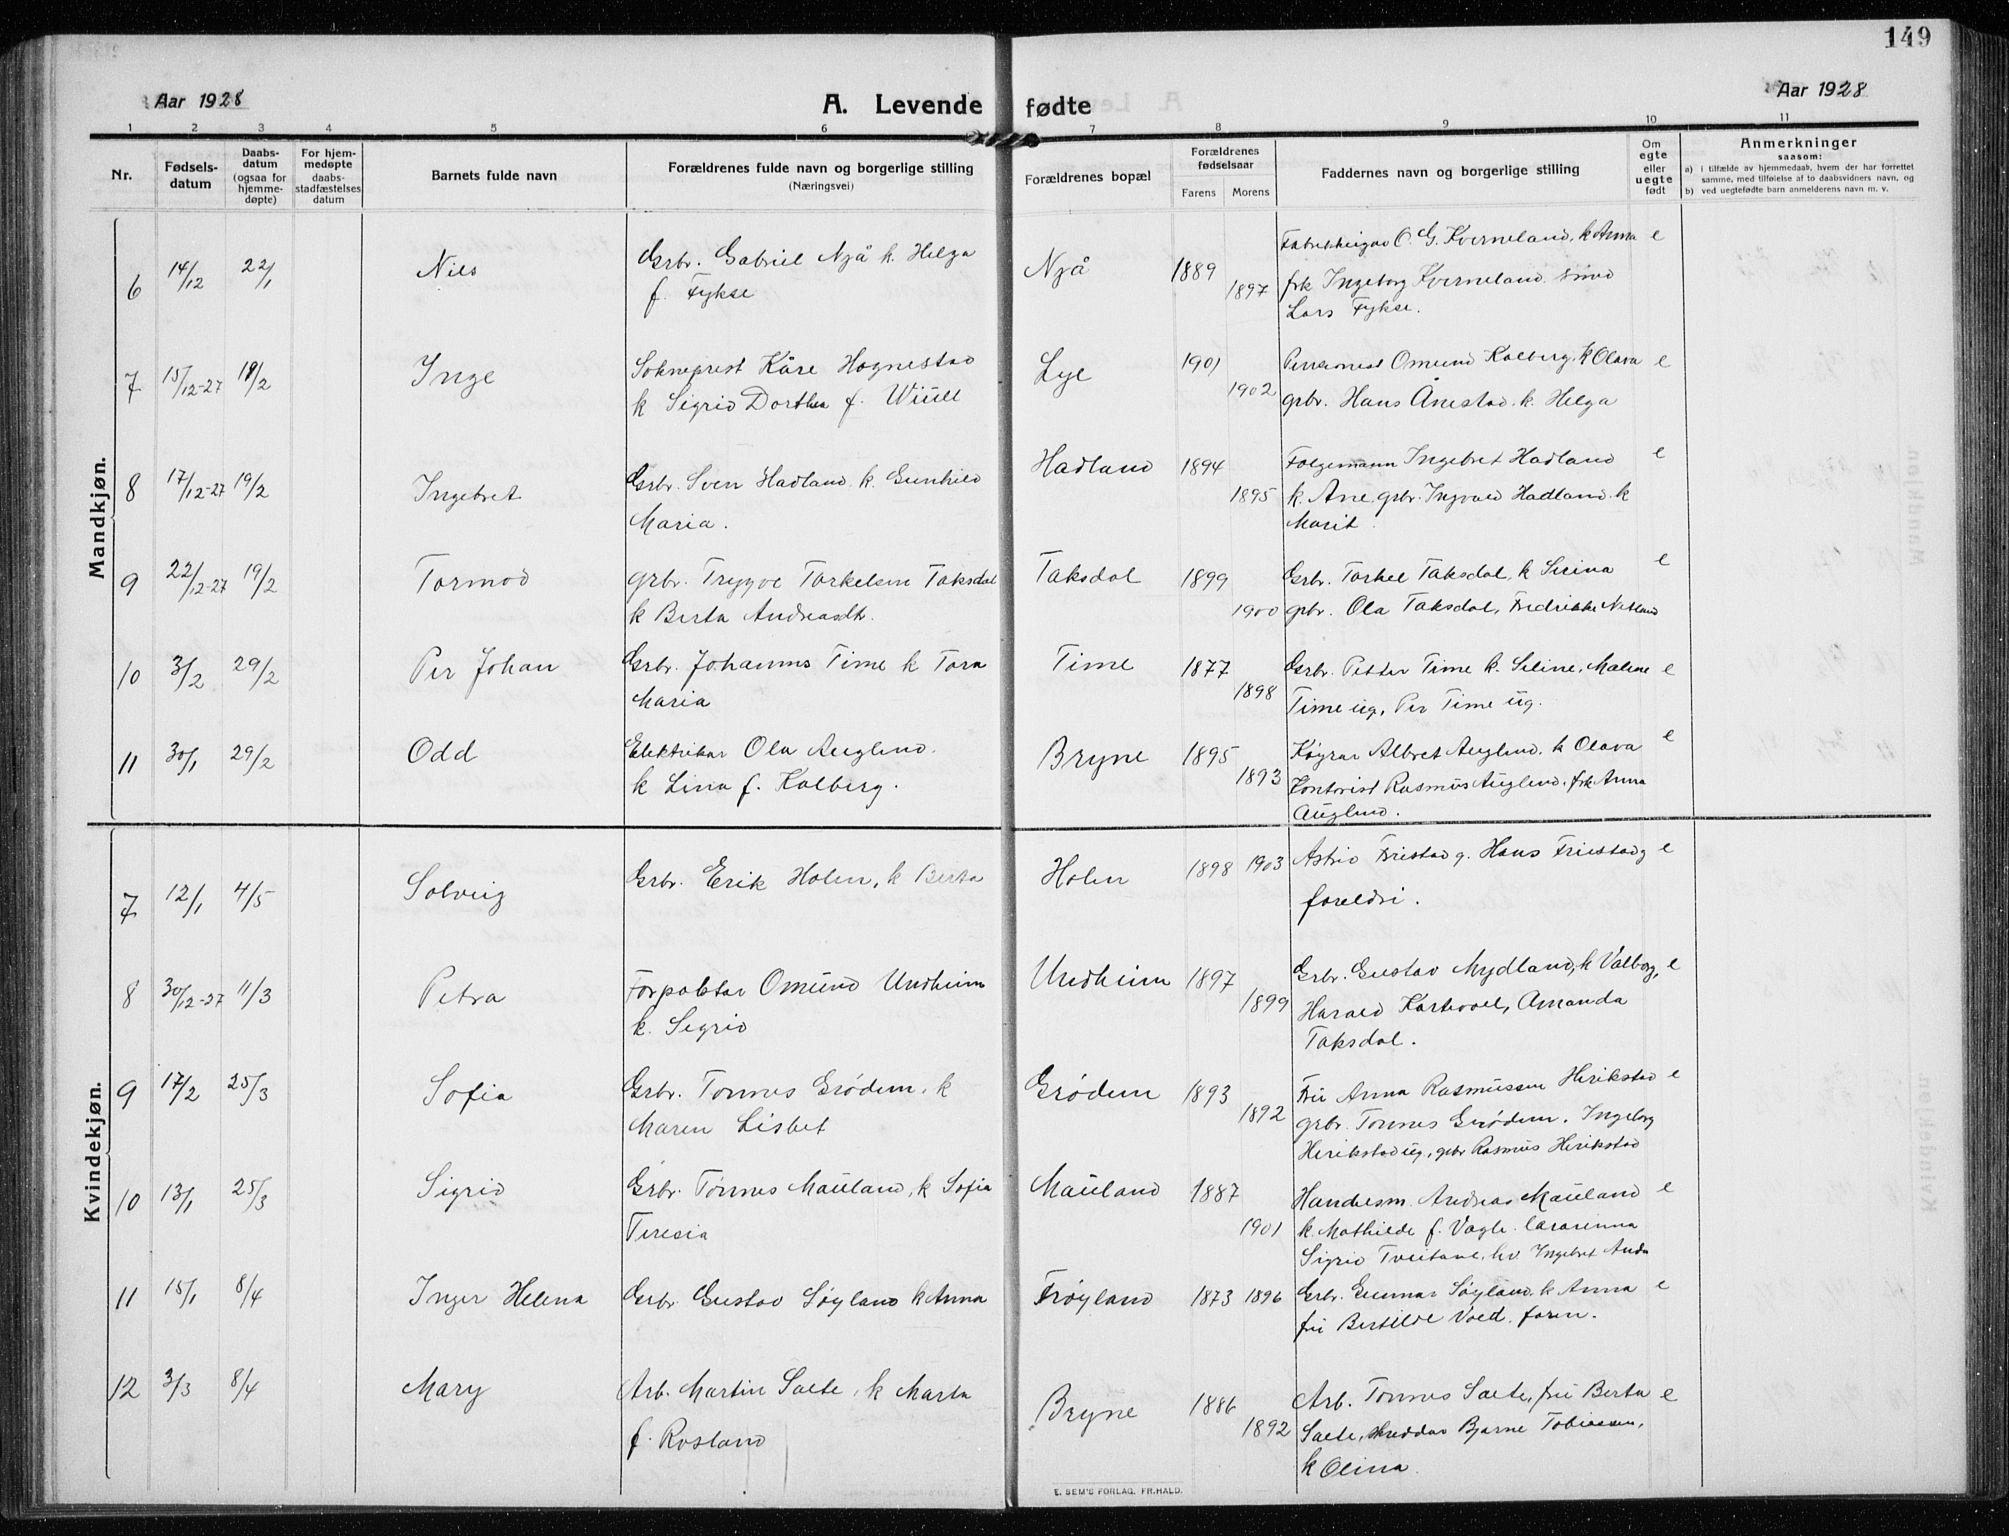 149
Aar 1928
A. Levende fødte
Aar 1928
1 2 3 4 5 6 7 8 9 10 11
Nr.
Fødsels-
datum
Daabs-
datum
(ogsaa for
hjemme-
døpte)
For hjem-
medøpte
daabs-
stadfæstelses
datum
Barnets fulde navn
Forældrenes fulde navn og borgerlige stilling
(Næringsvei)
Forældrenes bopæl
Forældrenes
fødselsaar
Farens Morens
Faddernes navn og borgerlige stilling
Om
egte
eller
uegte
født
Anmerkninger
saasom:
a) i tilfælde av hjemmedaab, hvem der har forrettet
samme, med tilføielse af to daabsvidners navn, og
b) ved uegtefødte barn anmelderens navn m. v.
Mandkjøn.
6 14/12 22/1 Nils Grbr. Gabriel Njå k. Helga
f. Fykse
Njå 1889 1897 O. G. Kverneland, k Anna e
frk Ingeborg Kverneland. smed
Lars Fykse.
7 15/12-27 19/2 Inge Sokneprest Kåre Hognestad
k Sigrid Dorthea f. Wiull
Lye 1901 1902 Pensionist Omund Kalberg, k Olava e
gbr. Hans Ånestad. k. Helga
8 17/12-27 19/2 Ingebret Grbr. Sven Hadland k. Gunhild
Maria.
Hadland 1894 1895 Folgemann Ingebret Hadland e
k. Ane, grbr. Ingvald Hadland k
Marit.
9 22/12-27 19/2 Tormod grbr. Trygve Torkelsen Taksdal
k Berta Andreasdtr.
Taksdal 1899 1900 Grbr. Torkel Taksdal, k Serina e
gbr. Ola Taksdal, Fredrikke Netland
10 3/2 29/2 Per Johan Grbr. Johannes Time k Tora
Maria
Time 1877 1898 Grbr. Petter Time k. Seline, Malene e
Time ug, Per Time ug.
11 30/1 29/2 Odd Elektrikar Ola Auglend.
k Lina f. Kalberg.
Bryne 1895 1893 Køyrar Albret Auglend. k Olava e
Kontorist Rasmus Auglend. frk Anna
Auglend.
Kvindekjøn.
7 12/1 4/5 Solveig Grbr. Erik Holen, k Berta
Holen 1898 1903 Astrid Friestad g. Hans Friestad g e
foreldri.
8 30/12-27 11/3 Petra Forpaktar Omund Undheim
k. Sigrid
Undheim 1897 1899 Grbr. Gustav Mydland, k Valborg, e
Harald Kartevoll, Amanda
Taksdal.
9 17/2 25/3 Sofia Grbr. Tønnes Grødem. k
Maren Lisbet
Grødem 1893 1892 Fru Anna Rasmussen Herikstad e
grbr. Tønnes Grødem. Ingeborg
Herikstad ug, gbr Rasmus Herikstad
10 13/1 25/3 Sigrid Grbr. Tønnes Mauland, k Sofia
Teresia
Mauland 1887 1901 Handelsm. Andreas Mauland e
k. Mathilde f. Vagle. lærarinna
Sigrid Tveitane, hv Ingebret Anda
11 15/1 8/4 Inger Helena Grbr. Gustav Søyland k Anna
Frøyland 1873 1896 Grbr. Gunnar Søyland, k Anna e
fru Bertilde Voed. faren.
12 3/3 8/4 Mary Arb. Martin Saele, k Marta
f. Rosland
Bryne 1886 1892 Arb. Tønnes Saele, fru Berta e
Saele, skreddar Bjarne Tobiassen,
k Olina
E. SEM'S FORLAG, FR.HALD.